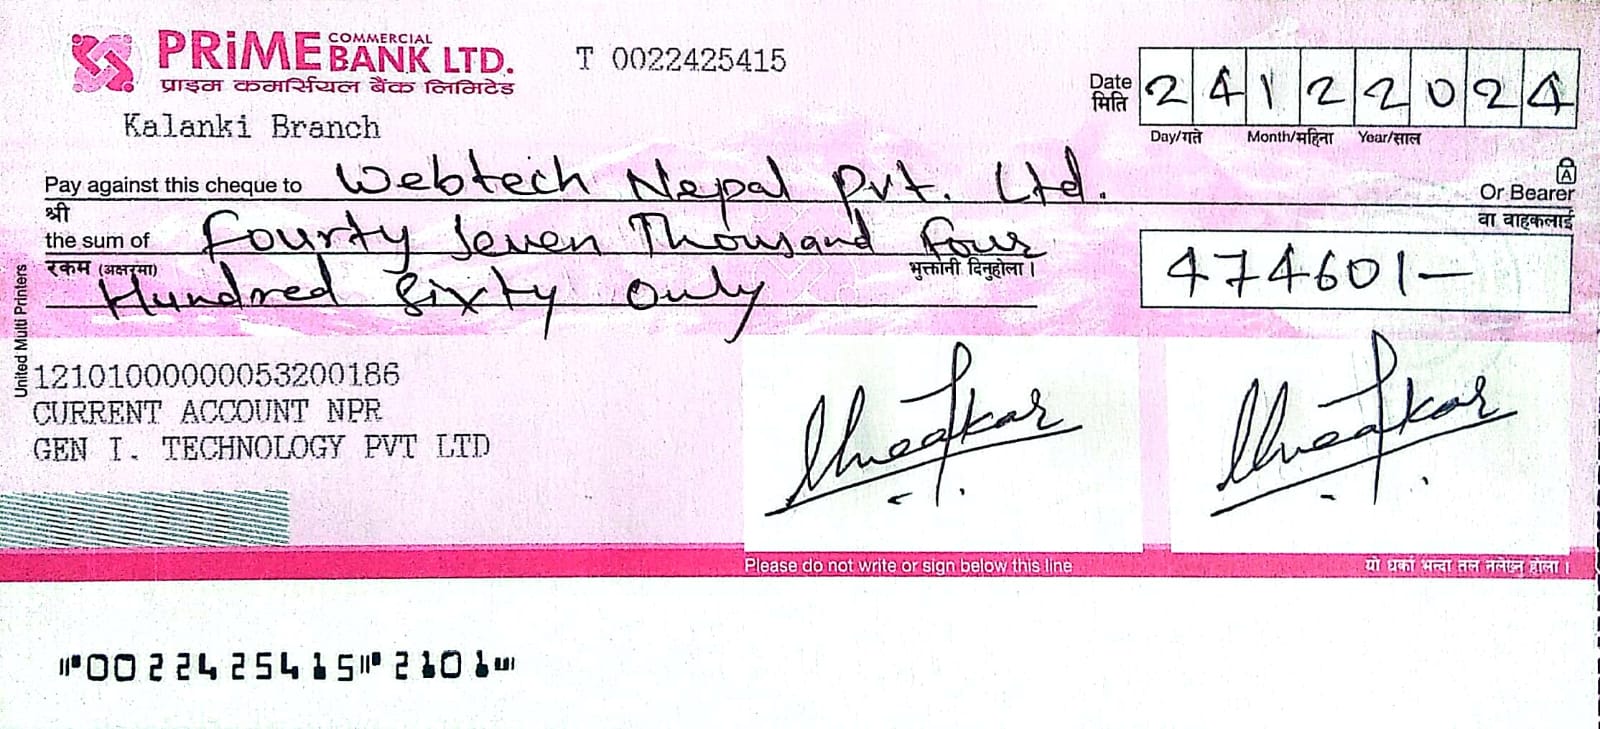 PRiME COMMERCIAL BANK LTD.
प्राइम कमर्सियल बैंक लिमिटेड
Kalanki Branch
T 0022425415
Date मिति 24122024
Day/गते Month/महिना Year/साल
Pay against this cheque to Webtech Nepal Pvt. Ltd.
A
Or Bearer
श्री
वा वाहकलाई
the sum of Fourty Seven Thousand Four
रकम (अक्षरमा)
भुक्तानी दिनुहोला ।
Hundred Sixty Only
474601-
United Multi Printers
12101000000053200186
CURRENT ACCOUNT NPR
GEN I. TECHNOLOGY PVT LTD
Please do not write or sign below this line
यो धर्का भन्दा तल नलेख्नु होला ।
⑈0022425415⑈2101⑉